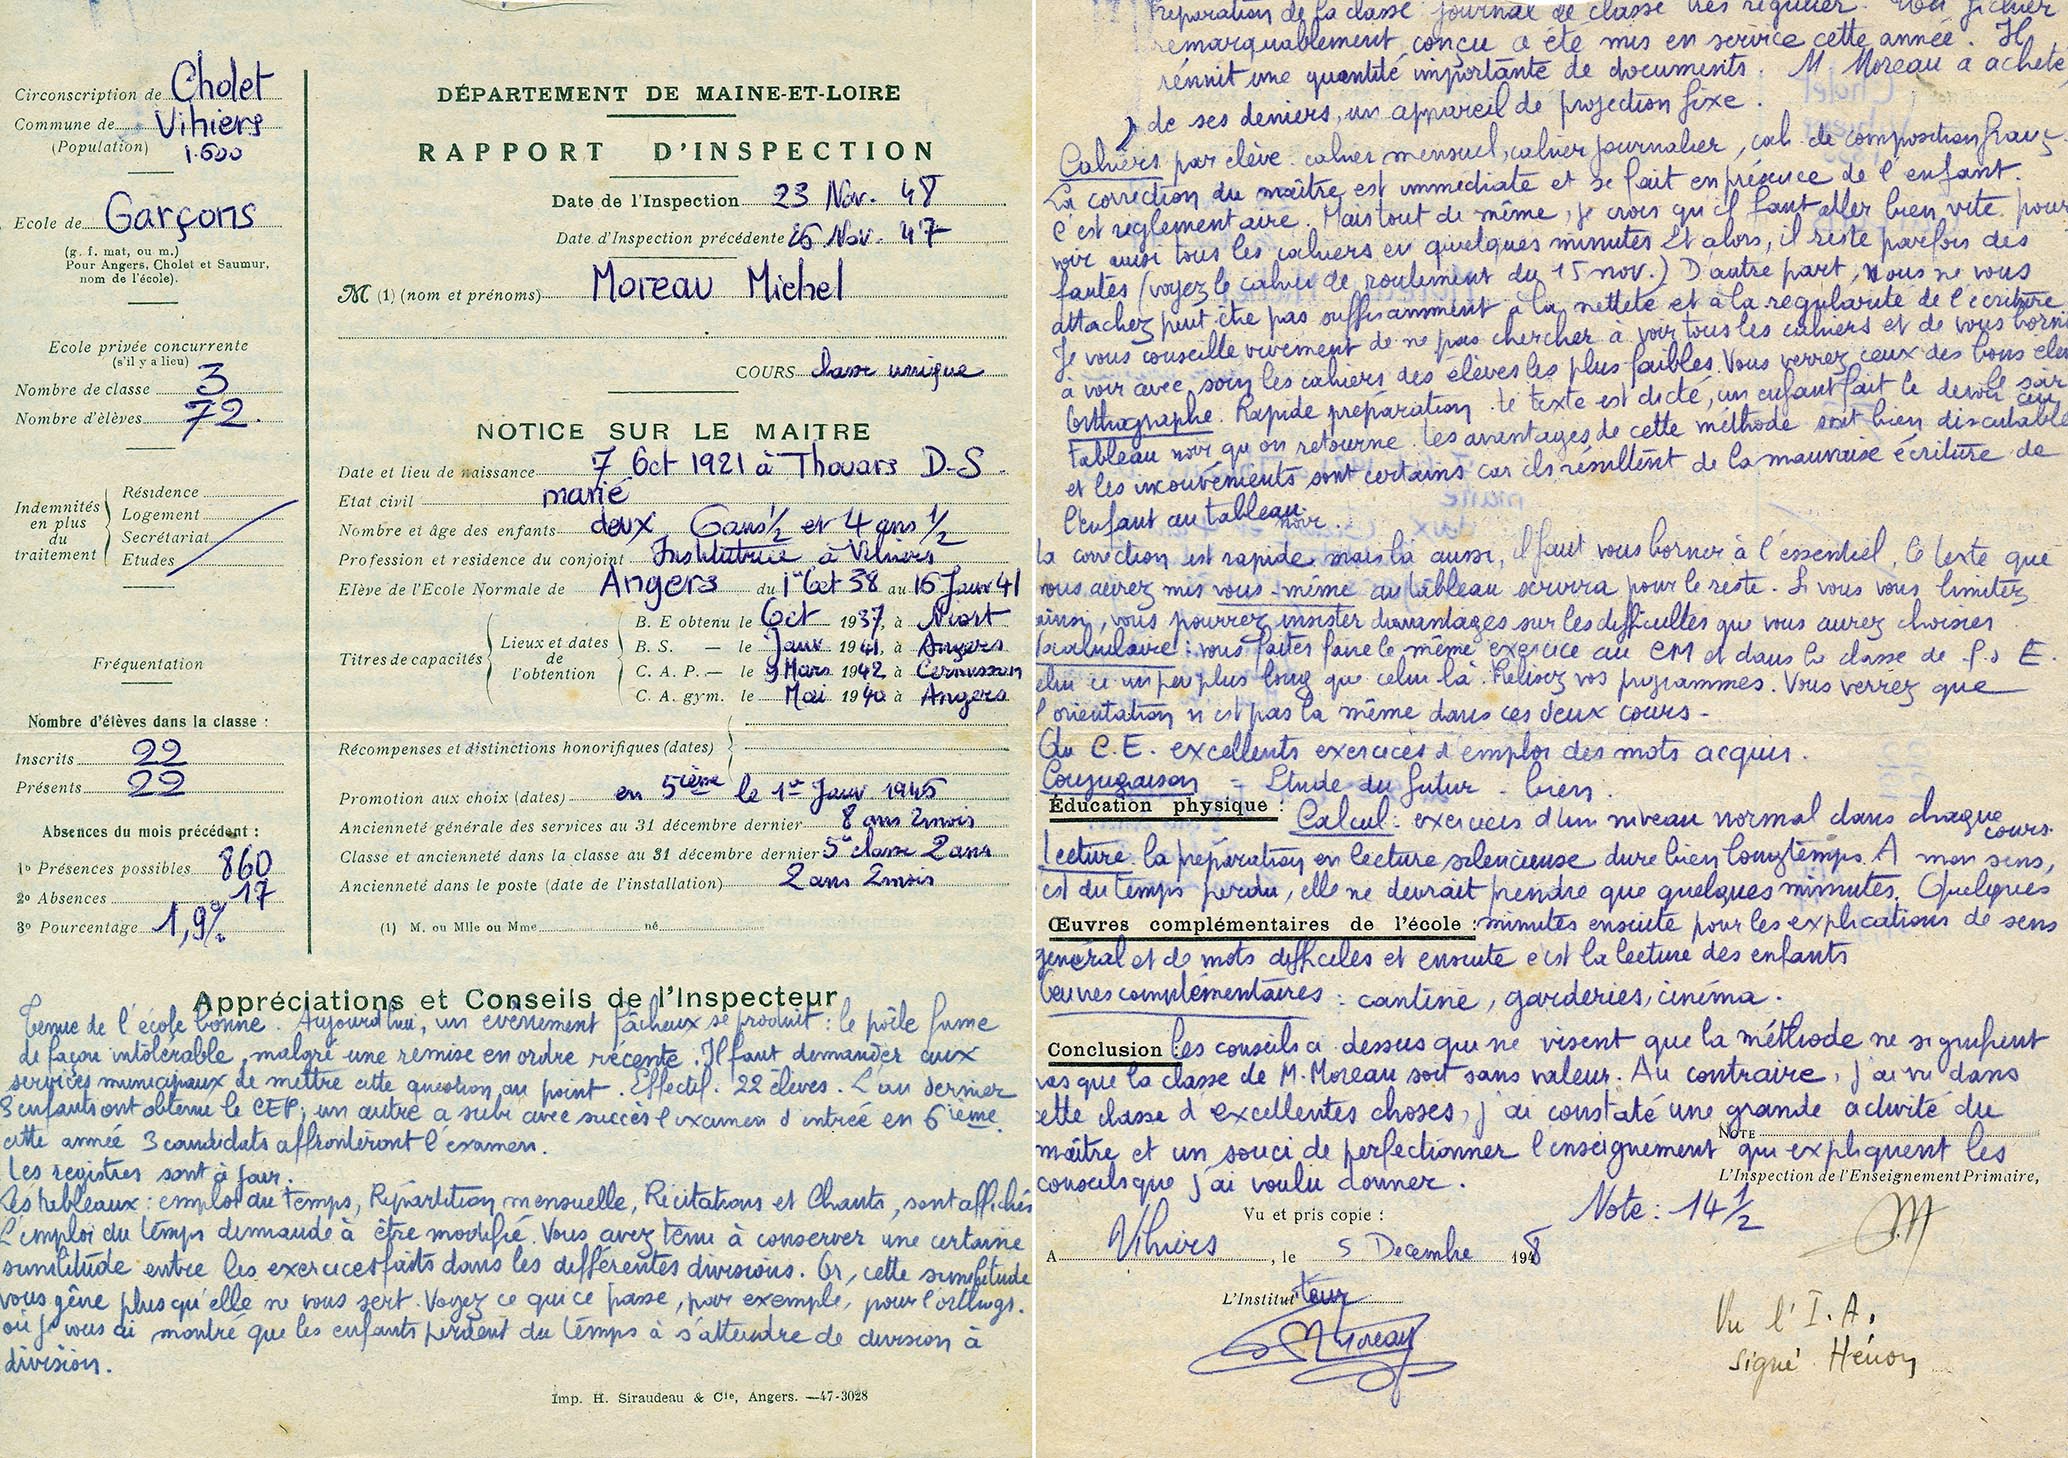 Circonscription de Cholet
Commune de Vihiers
(Population) 1.600
Ecole de Garçons
(g. f. mat, ou m.)
Pour Angers, Cholet et Saumur,
nom de l'école).
Ecole privée concurrente
(s'il y a lieu)
Nombre de classe 3
Nombre d'élèves 72.
Indemnités en plus du traitement
Résidence
Logement
Secrétariat
Etudes
Fréquentation
Nombre d'élèves dans la classe :
Inscrits 22
Présents 22
Absences du mois précédent :
1º Présences possibles 860
2º Absences 17
3º Pourcentage 1,9%
DÉPARTEMENT DE MAINE-ET-LOIRE
RAPPORT D'INSPECTION
Date de l'Inspection 23 Nov. 48
Date d'Inspection précédente 26 Nov. 47
M (1) (nom et prénoms) Moreau Michel
COURS classe unique
NOTICE SUR LE MAITRE
Date et lieu de naissance 7 Oct 1921 à Thouars D-S.
Etat civil marié
Nombre et âge des enfants deux 6 ans 1/2 et 4 ans 1/2
Profession et residence du conjoint Institutrice à Vihiers
Elève de l'Ecole Normale de Angers du 1er Oct 38 au 16 Janv 41
Titres de capacités
Lieux et dates de l'obtention
B. E obtenu le Oct 1937, à Niort
B. S. — le Janv 1941, à Angers
C. A. P. — le 9 Mars 1942 à Cernusson
C. A. gym. le Mai 1940 à Angers
Récompenses et distinctions honorifiques (dates)
Promotion aux choix (dates) en 5ième le 1er Janv 1945
Ancienneté générale des services au 31 décembre dernier 8 ans 2 mois
Classe et ancienneté dans la classe au 31 décembre dernier 5e classe 2 ans
Ancienneté dans le poste (date de l'installation) 2 ans 2 mois
(1) M. ou Mlle ou Mme né
Appréciations et Conseils de l'Inspecteur
Tenue de l'école bonne. Aujourd'hui, un evènement fâcheux se produit : le poêle fume
de façon intolérable, malgré une remise en ordre récente. Il faut demander aux
services municipaux de mettre cette question au point. Effectif. 22 élèves. L'an dernier
3 enfants ont obtenu le CEP; un autre a subi avec succès l'examen d'entrée en 6ième.
cette année 3 candidats affronteront l'examen.
Les registres sont à jour.
Les tableaux : emploi du temps, Répartition mensuelle, Récitations et Chants, sont affichés
L'emploi du temps demande à être modifié. Vous avez tenu à conserver une certaine
similitude entre les exercices faits dans les différentes divisions. Or, cette similitude
vous gêne plus qu'elle ne vous sert. Voyez ce qui ce passe, par exemple, pour l'orthogr.
où je vous ai montré que les enfants perdent du temps à s'attendre de division à
division.
Imp. H. Siraudeau & Cie, Angers. —47-3028
Préparation de la classe journal de classe très régulier. fichier
remarquablement conçu a été mis en service cette année. Il
réunit une quantité importante de documents. M Moreau a acheté
de ses deniers, un appareil de projection fixe.
Cahiers par élève. cahier mensuel, cahier journalier, cah. de composition franç.
La correction du maître est immédiate et se fait en présence de l'enfant.
C'est règlementaire. Mais tout de même, je crois qu'il faut aller bien vite pour
voir ainsi tous les cahiers en quelques minutes Et alors, il reste parfois des
fautes (voyez le cahier de roulement du 15 nov.) D'autre part, vous ne vous
attachez peut être pas suffisamment à la netteté et à la régularité de l'écriture
Je vous conseille vivement de ne pas chercher à voir tous les cahiers et de vous borner
à voir avec soin les cahiers des élèves les plus faibles. Vous verrez ceux des bons le soir
Orthographe. Rapide préparation. Le texte est dicté, un enfant fait le devoir au
tableau noir qu'on retourne. Les avantages de cette méthode sont bien discutables
et les inconvénients sont certains car ils résultent de la mauvaise écriture de
l'enfant au tableau noir.
La correction est rapide mais là aussi, il faut vous borner à l'essentiel. Le texte que
vous aurez mis vous-même au tableau servira pour le reste. Si vous vous limitez
ainsi, vous pourrez insister davantages sur les difficultés que vous aurez choisies.
Vocabulaire : vous faites faire le même exercice au CM et dans la classe de F. E.
celui ci un peu plus long que celui là. Relisez vos programmes. Vous verrez que
l'orientation n'est pas la même dans ces deux cours.
Au C.E. excellents exercices d'emploi des mots acquis.
Conjugaison = Etude du futur - bien.
Éducation physique :
Calcul : exercices d'un niveau normal dans chaque cours.
Lecture la préparation en lecture silencieuse dure bien longtemps. A mon sens,
c'est du temps perdu, elle ne devrait prendre que quelques minutes. Quelques
Œuvres complémentaires de l'école : minutes ensuite pour les explications de sens
général et de mots difficiles et ensuite c'est la lecture des enfants
Oeuvres complémentaires : cantine, garderies, cinéma.
Conclusion : Les conseils ci dessus qui ne visent que la méthode ne signifient
pas que la classe de M. Moreau soit sans valeur. Au contraire, j'ai vu dans
cette classe d'excellentes choses, j'ai constaté une grande activité du
NOTE
maître et un souci de perfectionner l'enseignement qui expliquent les
L'Inspection de l'Enseignement Primaire,
conseils que j'ai voulu donner.
Note : 14 1/2
Vu et pris copie :
A Vihiers, le 5 Decembre 1948
L'Instituteur
Moreau
Vu l'I.A.
signé Hénon